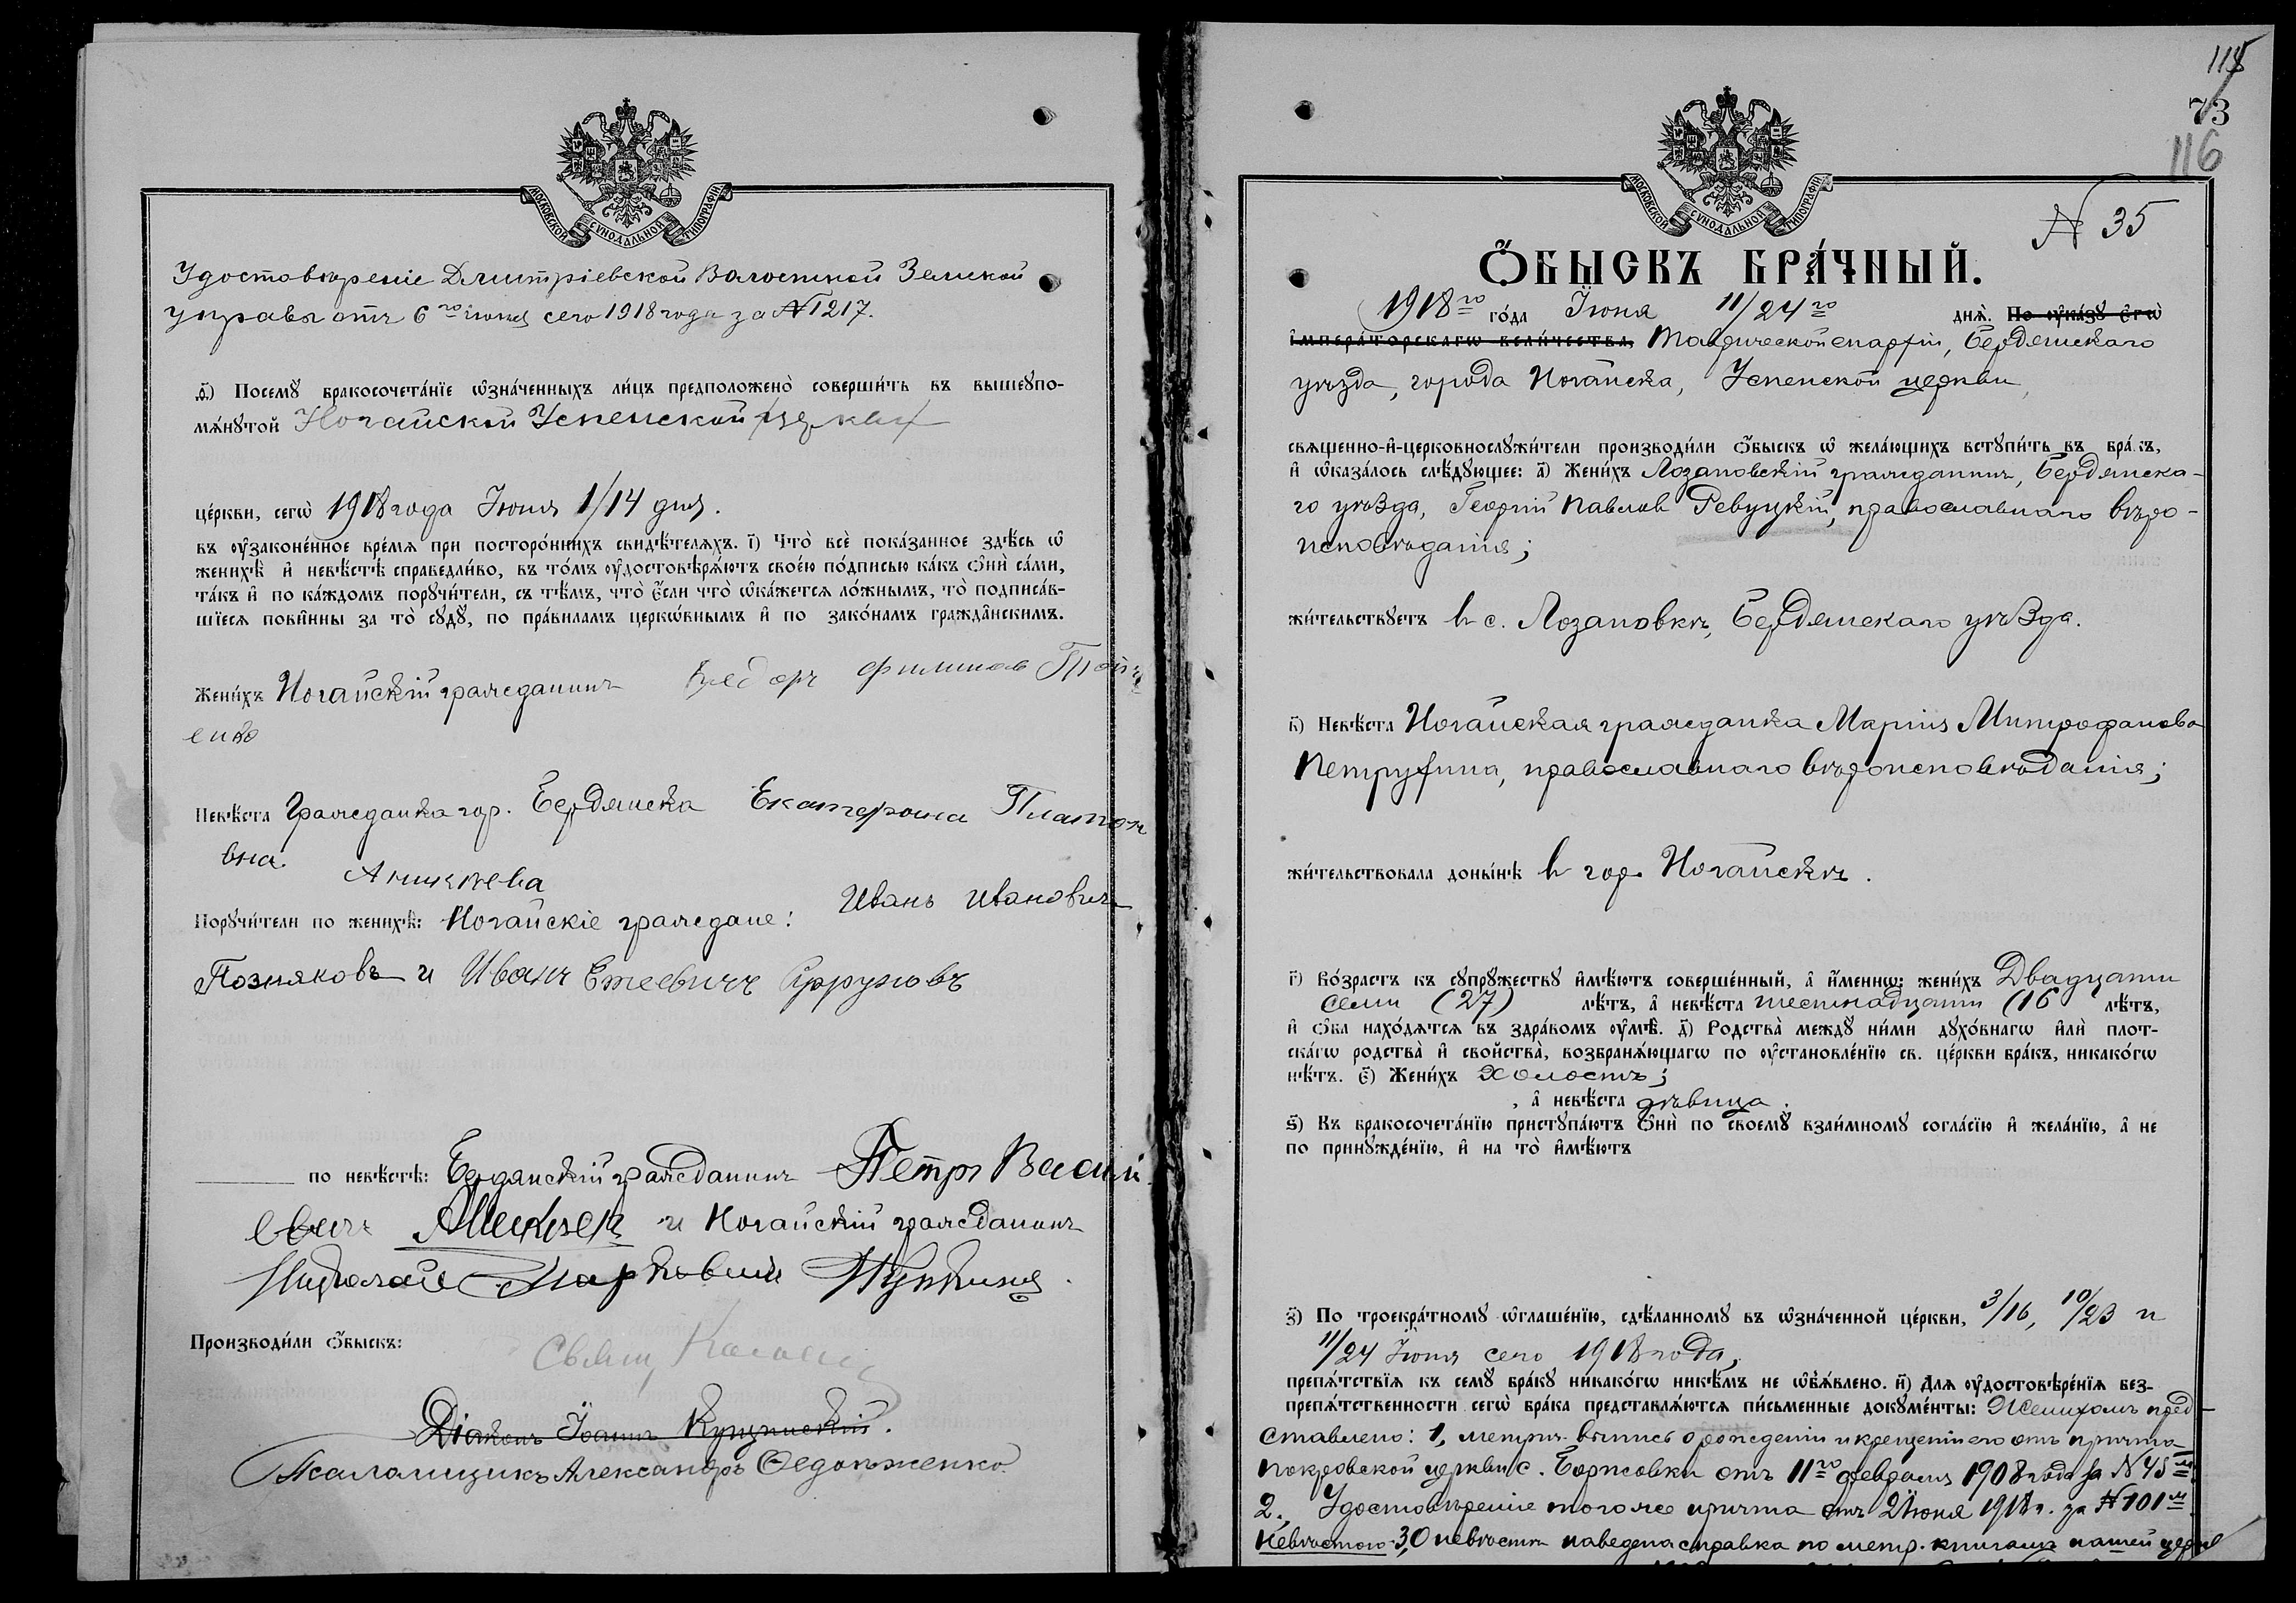 МОСКОВСКОЙ СѴНОДАЛЬНОЙ ТИПОГРАФІИ
Удостовѣреніе Дмитріевской Волостной Земской
управы отъ 6го іюня сего 1918 года за № 1217.
д҃і) Посемꙋ̀ бракосочета́нїе ѡ҆зна́ченныхъ ли́цъ предположено̀ соверши́ть въ вышеꙋпо-
мѧ́нꙋтой Ногайской Успенской церкви
це́ркви, сегѡ̀ 1918 года Іюня 1/14 дня.
въ ᲂу҆зако́ненное вре́мѧ при посторо́ннихъ свидѣ́телѧхъ. і҃) Что̀ всѐ пока́занное здѣ́сь ѡ҆
женихѣ̀ и҆ невѣ́стѣ справедли́во, въ то́мъ ᲂу҆достовѣрѧ́ютъ свое́ю по́дписью ка́къ ѻ҆нѝ са́ми,
та́къ и҆ по ка́ждомъ порꙋчи́тели, съ тѣ́мъ, что̀ є҆́сли что̀ ѡ҆ка́жетсѧ ло́жнымъ, то̀ подписа́в-
шїесѧ пови́нны за то̀ сꙋдꙋ̀, по пра́виламъ церкѡ́внымъ и҆ по зако́намъ гражда́нскимъ.
Жени́хъ Ногайскій гражданинъ Ѳедоръ Филипов
енко
Невѣ́ста Гражданка гор. Бердянска Екатерина Платон
вна.
Порꙋчи́тели по женихѣ̀: Ногайскіе граждане: Иванъ Ивановичъ
Позняковъ и Иванъ
по невѣ́стѣ: Бердянскій гражданинъ Петръ Васил
евичъ и Ногайскій гражданинъ
Николай
Производи́ли ѻ҆́быскъ:
Свящ.
Діаконъ Іоаннъ
Псаломщикъ Александръ Ѳедолженко.
115
73
116
МОСКОВСКОЙ СѴНОДАЛЬНОЙ ТИПОГРАФІИ
№ 35
Ѻ҆́БЫСКЪ БРА́ЧНЫЙ.
1918го го́да Іюня 11/24го днѧ̀. По ᲂу҆ка́зꙋ є҆гѡ̀
і҆мпера́торскагѡ вели́чества, Таврической епархіи, Бердянскаго
уѣзда, города Ногайска, Успенской церкви,
свѧще́нно-и҆-церковнослꙋжи́тели производи́ли ѻ҆́быскъ ѡ҆ жела́ющихъ встꙋпи́ть въ бра́къ,
и҆ ѡ҆каза́лось слѣ́дꙋющее: а҃) Жени́хъ Лозановскій гражданинъ, Бердянска-
го уѣзда, Георгій Павлов Ревуцкій, православнаго вѣро-
исповѣданія;
жи́тельствꙋетъ в с. Лозановкѣ, Бердянскаго уѣзда.
в҃) Невѣ́ста Ногайская гражданка Марія Митрофанова
Петрухина, православнаго вѣроисповѣданія;
жи́тельствовала доны́нѣ в гор. Ногайскѣ.
г҃) Во́зрастъ къ сꙋпрꙋ́жествꙋ и҆мѣ́ютъ соверше́нный, а҆ и҆́меннѡ: жени́хъ Двадцати
семи (27) лѣ́тъ, а҆ невѣ́ста шестнадцати (16 лѣ́тъ,
и҆ ѻ҆́ба нахо́дѧтсѧ въ здра́вомъ ᲂу҆мѣ̀. д҃) Родства̀ междꙋ̀ ни́ми дꙋхо́внагѡ и҆лѝ плот-
ска́гѡ родства̀ и҆ сво́йства̀, возбранѧ́ющагѡ по ᲂу҆становле́нїю св. це́ркви бра́къ, никако́гѡ
нѣ́тъ. є҃) Жени́хъ холостъ;
, а҆ невѣ́ста дѣвица.
ѕ҃) Къ бракосочета́нїю пристꙋпа́ютъ ѻ҆нѝ по своемꙋ̀ взаи́мномꙋ согла́сїю и҆ жела́нїю, а҆ не
по принꙋжде́нїю, и҆ на то̀ и҆мѣ́ютъ
з҃) По троекра́тномꙋ ѡ҆глаше́нїю, сдѣ́ланномꙋ въ ѡ҆зна́ченной це́ркви, 3/16, 10/23 и
11/24 Іюня сего 1918 года,
препѧ́тствїѧ къ семꙋ̀ бра́кꙋ никако́гѡ никѣ́мъ не ѡ҆б̾ѧ́влено. и҃) Длѧ ᲂу҆достовѣре́нїѧ без-
препѧ́тственности сегѡ̀ бра́ка представлѧ́ютсѧ пи́сьменные докꙋме́нты: Женихомъ пред
ставлено: 1, метрич. выпись о рожденіи и крещеніи его отъ причта
Покровской церкви с. Борисовки отъ 11го февраля 1908 года за № 45м
2., Удостовѣреніе того же причта отъ 2 Іюня 1918 г. за № 101м
Невѣстою 3, О невѣстѣ наведена справка по метр. книгамъ нашей церкв